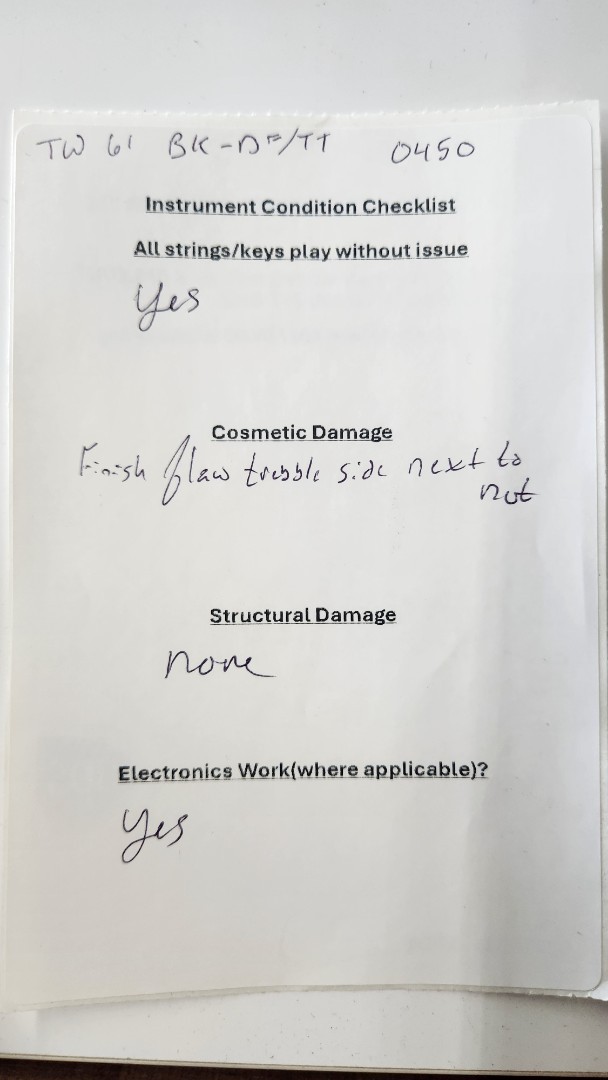 TW 61 BK-DF/TT 0450
Instrument Condition Checklist
All strings/keys play without issue
Yes
Cosmetic Damage
Finish flaw trebble side next to
nut
Structural Damage
none
Electronics Work(where applicable)?
Yes